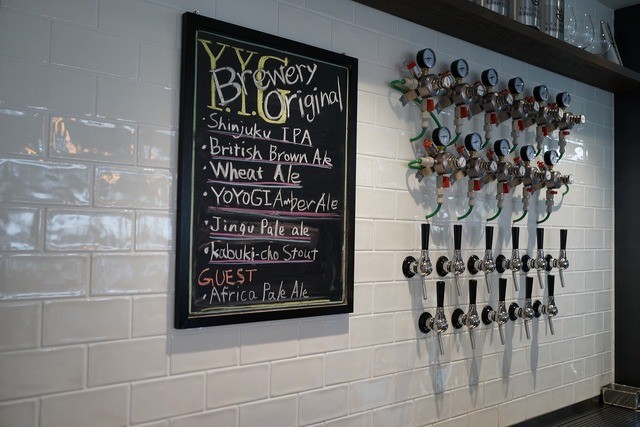 Y.Y.G
Brewery
Original
· Shinjuku IPA
· British Brown Ale
· Wheat Ale
· YOYOGI Amber Ale
· Jingu Pale ale
· Kabuki-cho Stout
GUEST
· Africa Pale Ale